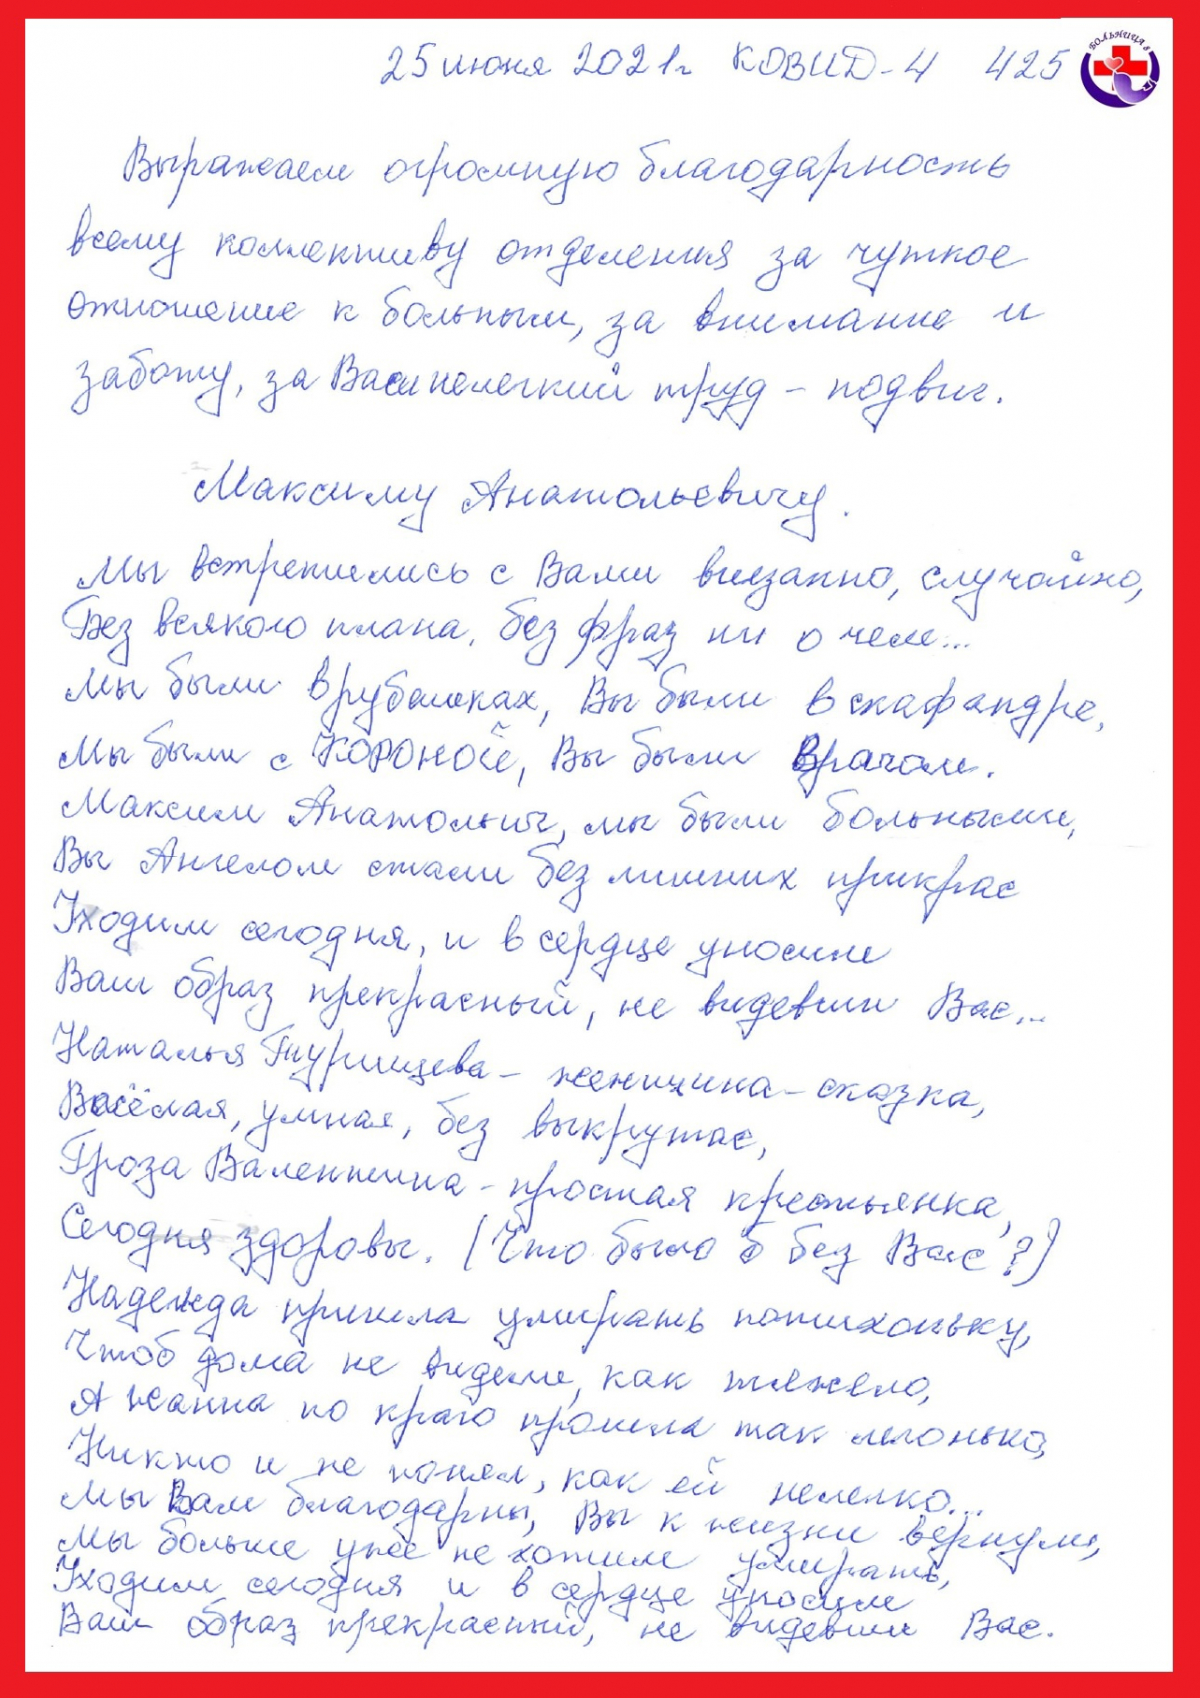 25 июня 2021г КОВИД-4 425
БОЛЬНИЦА 8
Выражаем огромную благодарность
всему коллективу отделения за чуткое
отношение к больным, за внимание и
заботу, за Ваш нелегкий труд – подвиг.
Максиму Анатольевичу.
Мы встретились с Вами внезапно, случайно,
Без всякого плана, без фраз ни о чем...
Мы были в рубашках, Вы были в скафандре,
Мы были с КОРОНОЙ, Вы были Врачом.
Максим Анатольич, мы были больными,
Вы Ангелом стали без лишних прикрас
Уходим сегодня, и в сердце уносим
Ваш образ прекрасный, не видевши Вас...
Наталья – женщина – сказка,
Весёлая, умная, без выкрутас,
Гроза Валентина – простая крестьянка,
Сегодня здоровы. (Что было б без Вас?)
Надежда пришла умирать потихоньку,
Чтоб дома не видели, как тяжело,
А Жанна по краю прошла так легонько,
Никто и не понял, как ей нелегко...
Мы Вам благодарны, Вы к жизни вернули,
Мы больше уже не хотим умирать,
Уходим сегодня и в сердце уносим
Ваш образ прекрасный, не видевши Вас.